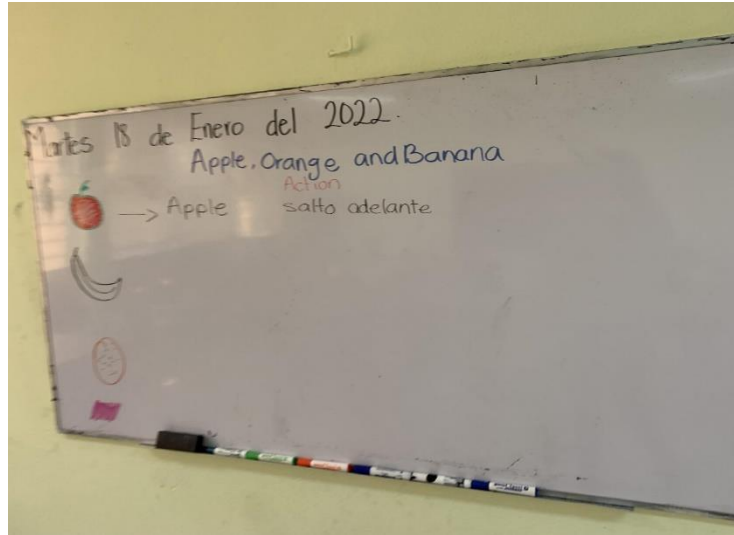 Martes 18 de Enero del 2022.
Apple, Orange and Banana
Action
Apple salto adelante